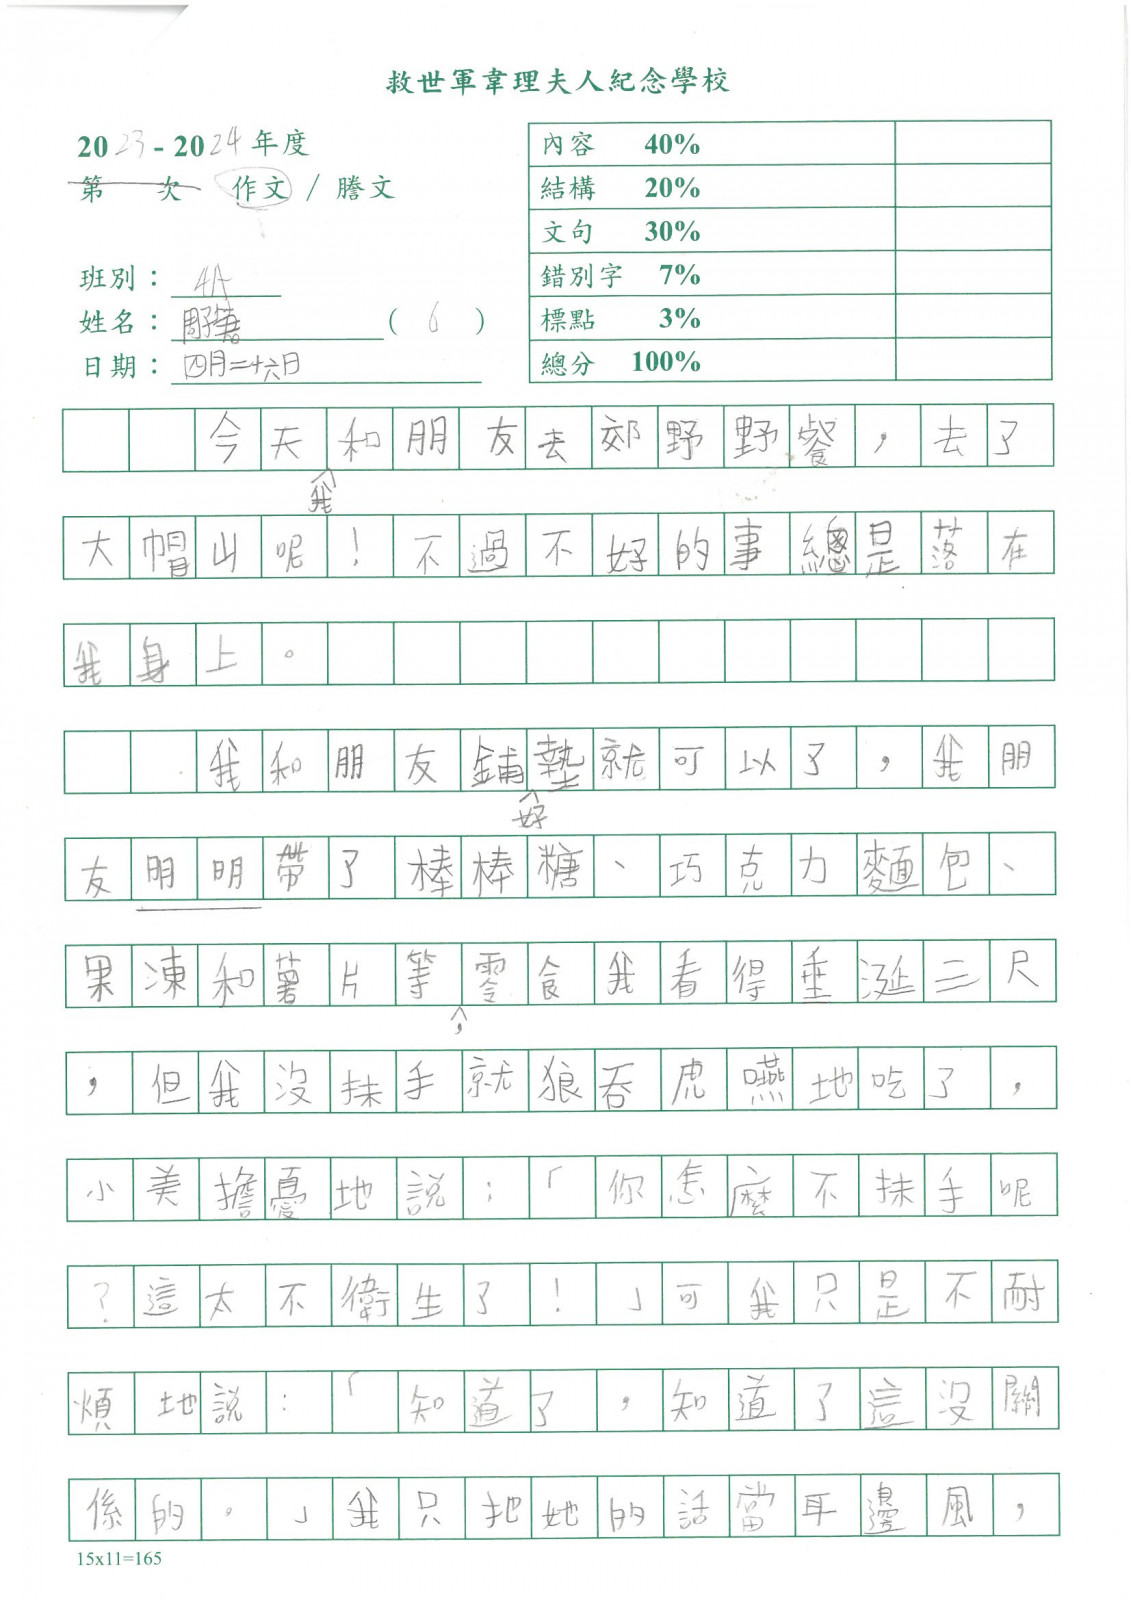 救世軍韋理夫人紀念學校
2023 - 2024 年度
第 次 作文 / 謄文
班別： 4A
姓名： ( 6 )
日期： 四月二十六日
內容 40%
結構 20%
文句 30%
錯別字 7%
標點 3%
總分 100%
今天和朋友去郊野野餐，去了
我
大帽山呢！不過不好的事總是落在
我身上。
我和朋友鋪墊就可以了，我朋
好
友明明帶了棒棒糖、巧克力麵包、
果凍和薯片等零食我看得垂涎三尺
，
，但我沒抹手就狼吞虎嚥地吃了，
小美擔憂地說：「你怎麼不抹手呢
？這太不衛生了！」可我只是不耐
煩地說：「知道了，知道了這沒關
係的。」我只把她的話當耳邊風，
15x11=165